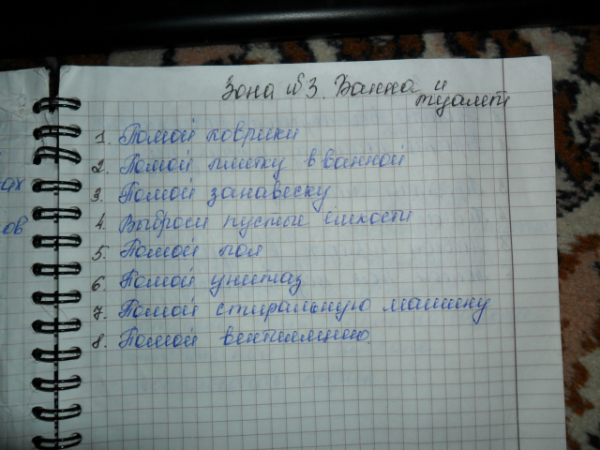 Зона №3. Ванна и
туалет
1. Помой коврики
2. Помой плитку в ванной
3. Помой занавеску
4. Выброси пустые ёмкости
5. Помой пол
6. Помой унитаз
7. Помой стиральную машину
8. Помой вентиляцию
ах
ов